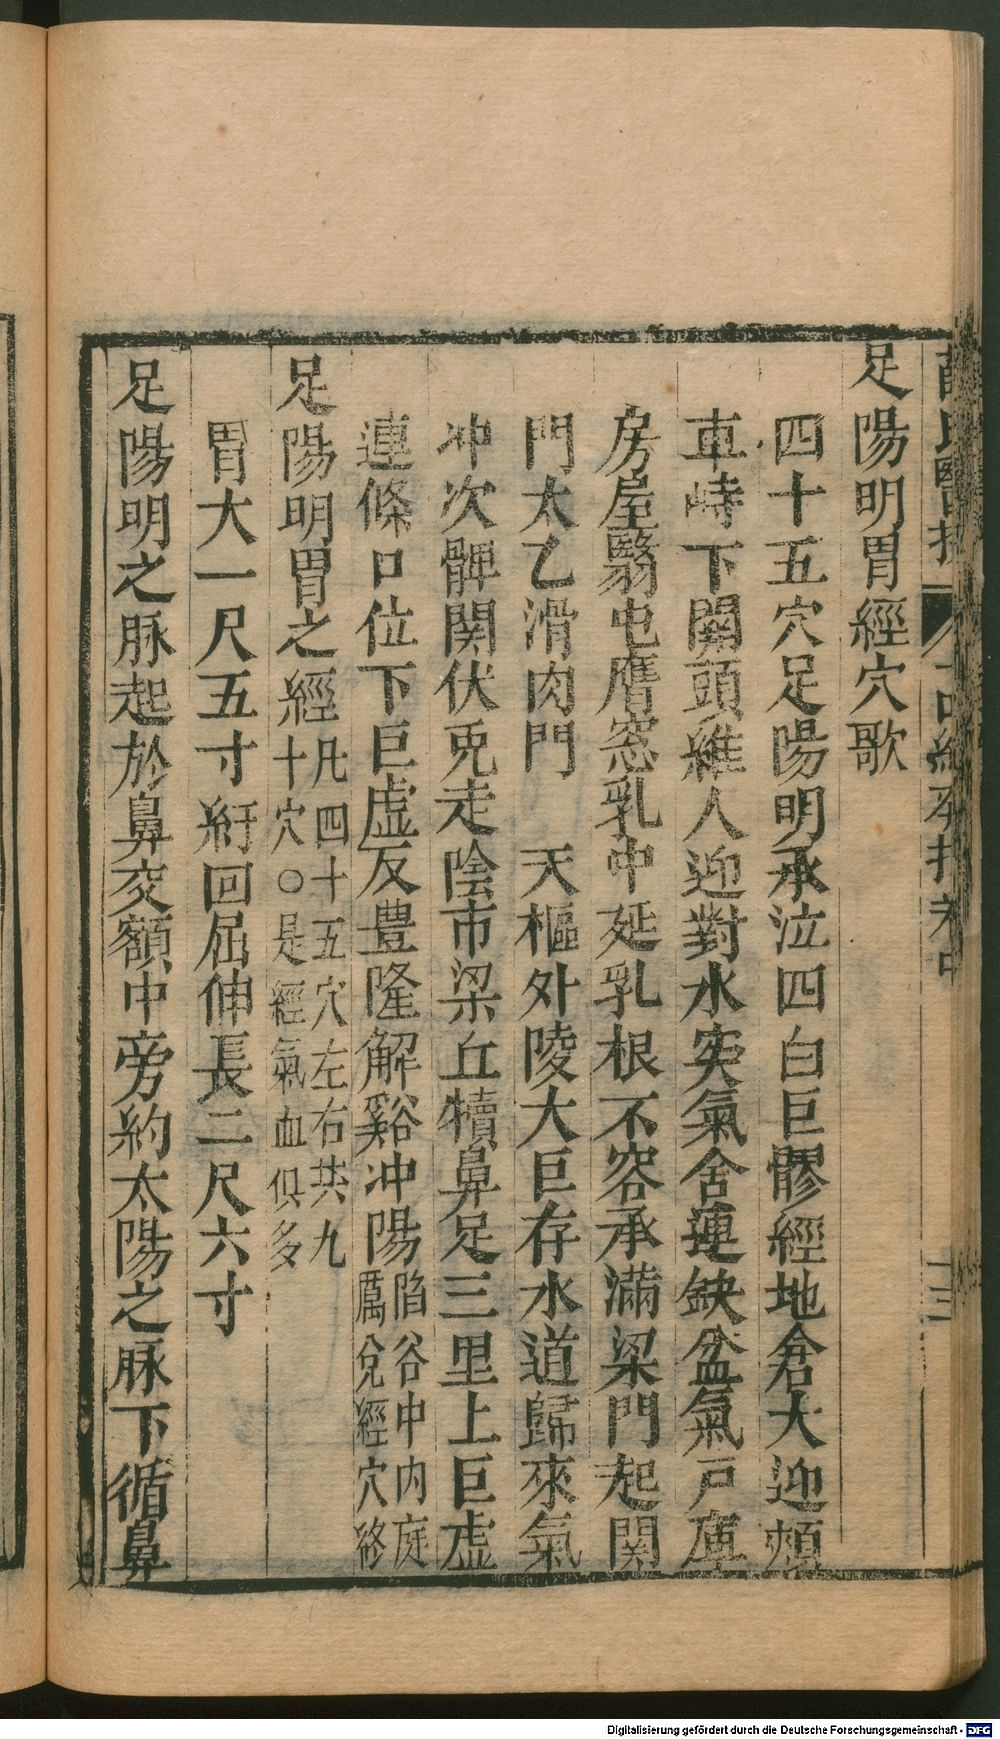 足陽明胃經穴歌
四十五穴足陽明承泣四白巨髎經地倉大迎頰
車峙下關頭維人迎對水突氣舍連缺盆氣戸庫
房屋翳屯膺窓乳中延乳根不容承滿梁門起関
門太乙滑肉門　天樞外陵大巨存水道歸來氣
冲次髀関伏兎走陰市梁丘犢鼻足三里上巨虚
連條口位下巨虚反豊隆解谿冲陽陷谷中内庭
厲兌經穴終
足陽明胃之經凡四十五穴左右共九
十穴○是經氣血俱多
胃大一尺五寸紆回屈伸長二尺六寸
足陽明之脉起於鼻交額中旁約太陽之脉下循鼻
Digitalisierung gefördert durch die Deutsche Forschungsgemeinschaft - DFG